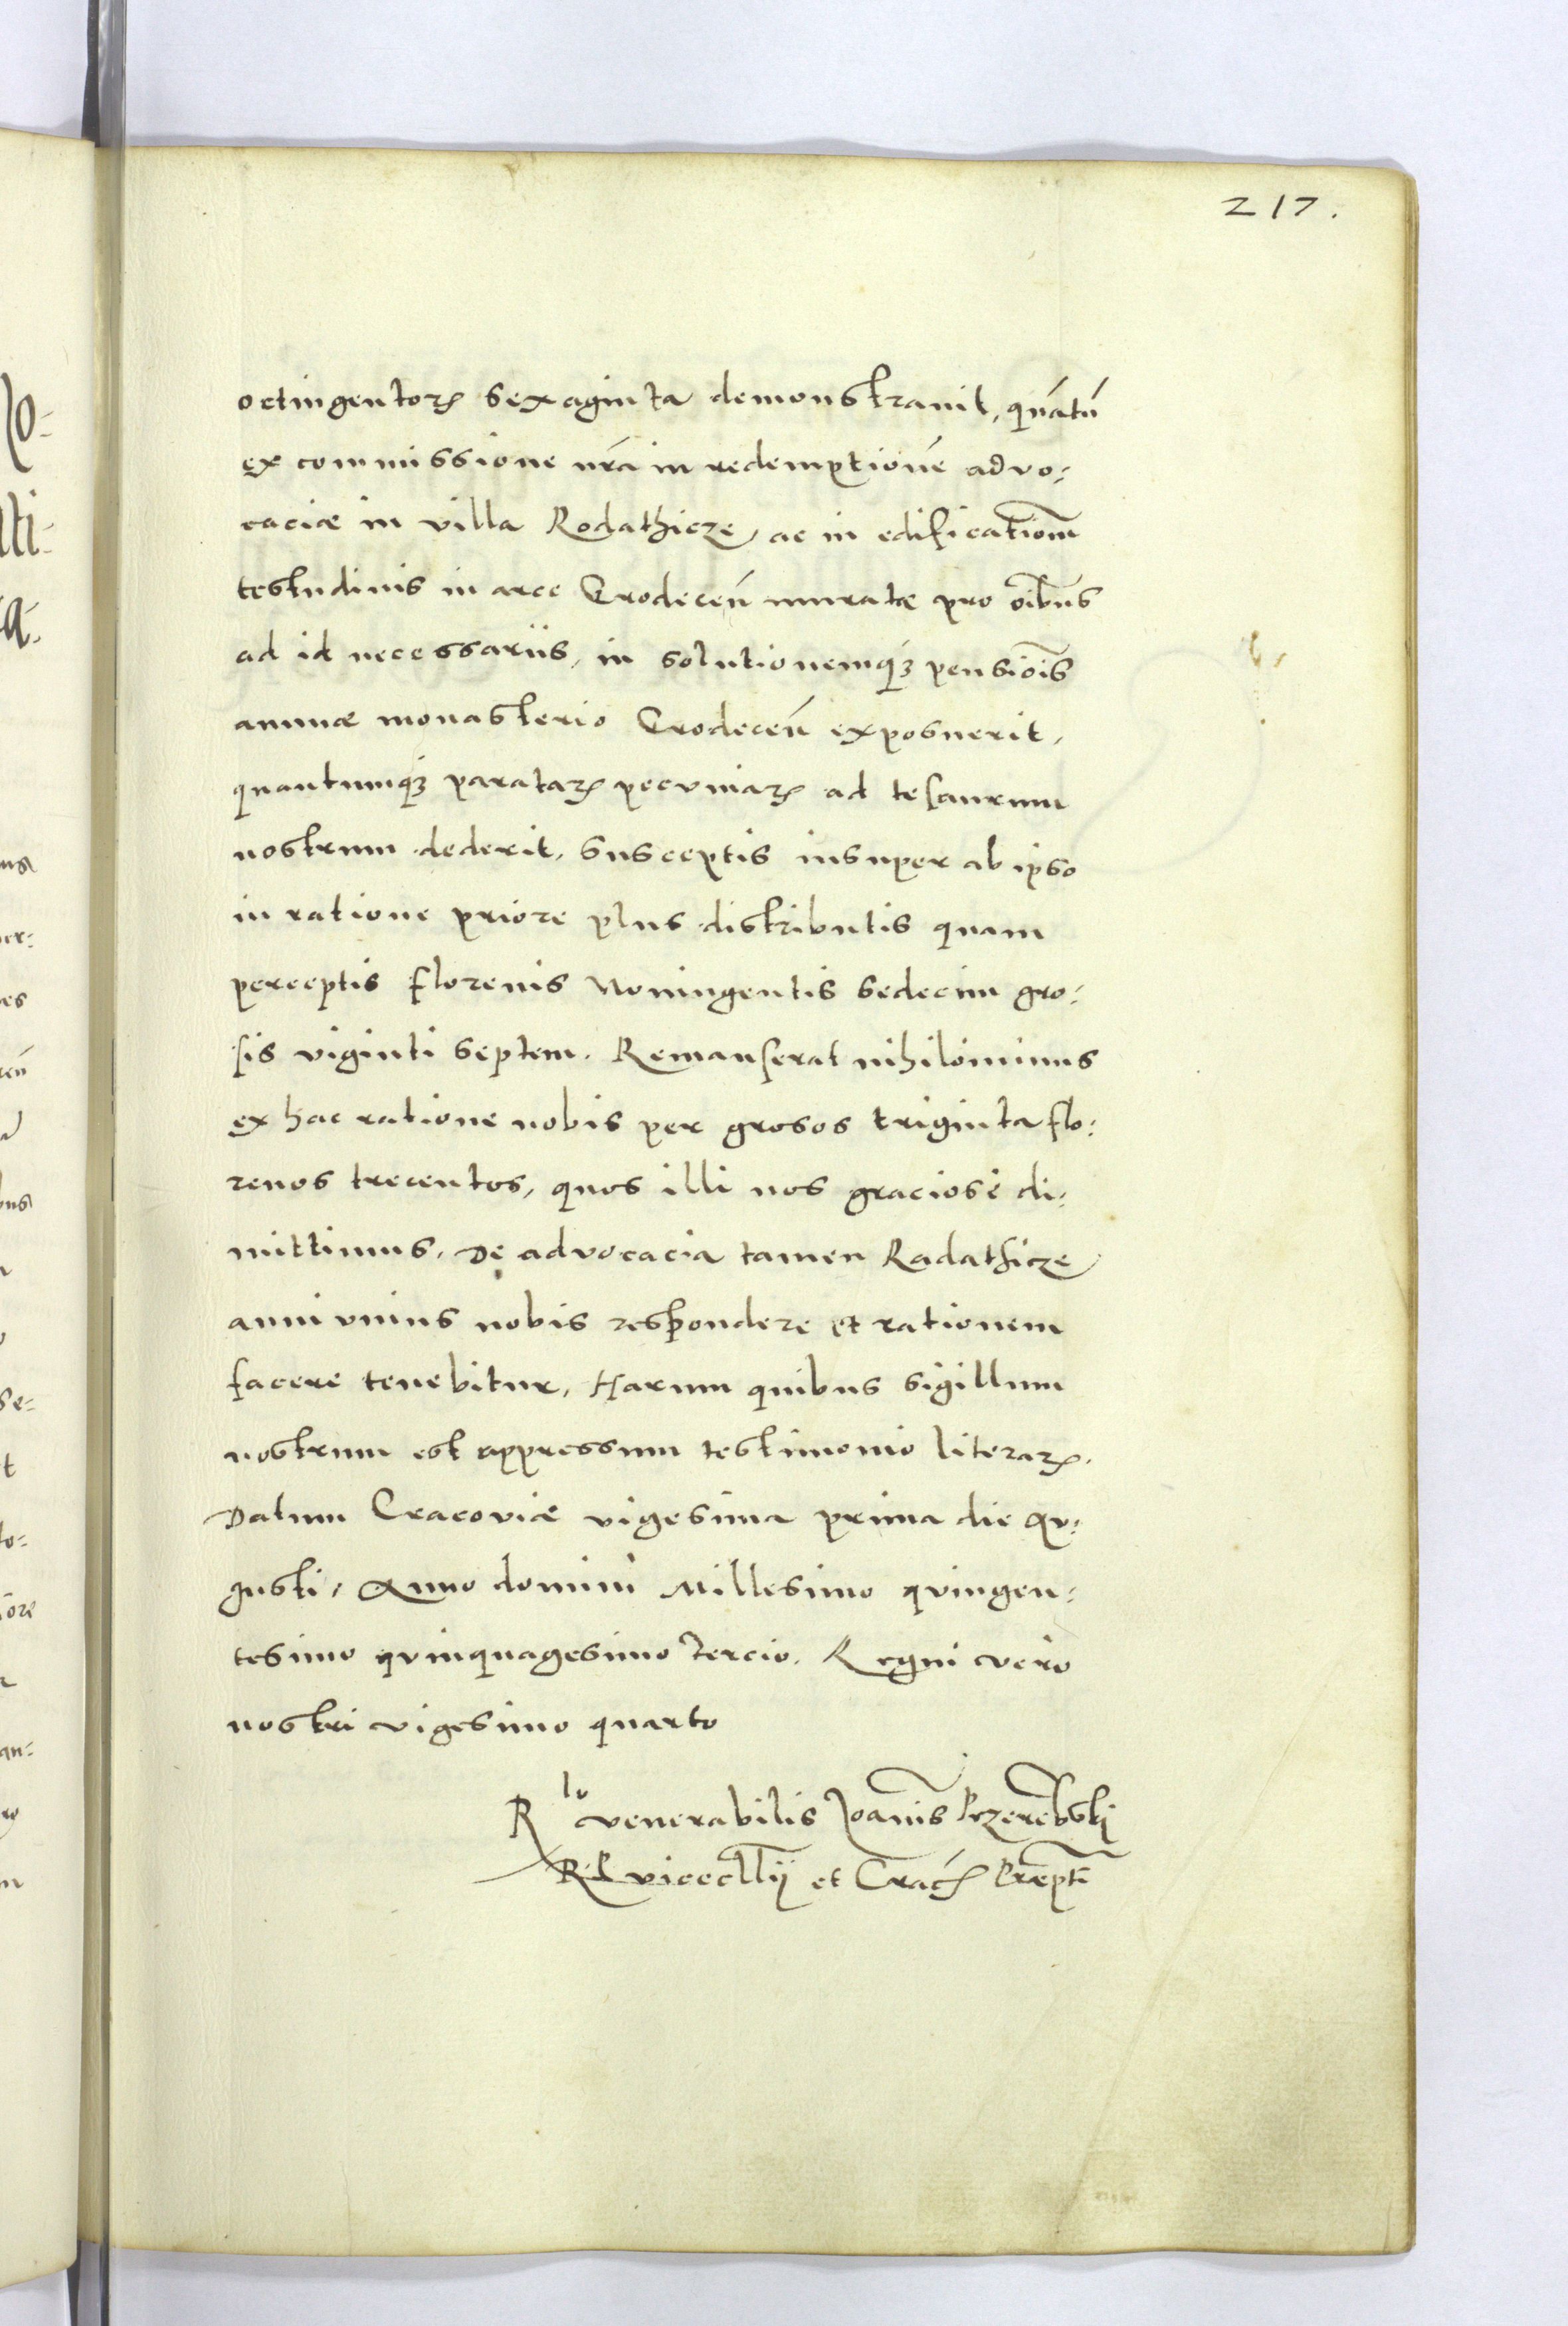 217.
octingentorꝝ sexaginta demonstravit, quātū
ex commissione nrā in redemptionē advo:
caciæ in villa Rodathicze, ac in edificationē
testudinis in arce Grodeceñ muratæ pro oībus
ad id necessariis, in solutionemqꝫ pensiōis
annuæ monasterio Grodeceñ exposuerit,
quantumqꝫ paratarꝝ pecuniarꝝ ad tesaurum
nostrum dederit, susceptis insuper ab ipso
in ratione priore plus distributis quam
perceptis florenis Noningentis sedecim gro:
sis viginti septem. Remanserat nihilominus
ex hac ratione nobis per grosos triginta flo:
renos trecentos, quos illi nos graciose di:
mittimus. De advocacia tamen Radathicze
anni unius nobis respondere et rationem
facere tenebitur, Harum quibus sigillum
nostrum est appressum testimonio literarꝝ.
Datum Cracoviæ vigesima prima die Au:
gusti, Anno domini Millesimo quingen:
tesimo quinquagesimo tercio. Regni vero
nostri vigesimo quarto
R lo venerabilis Joannis Przerembski
R. P. vicecllij et Cracꝫ Præpti